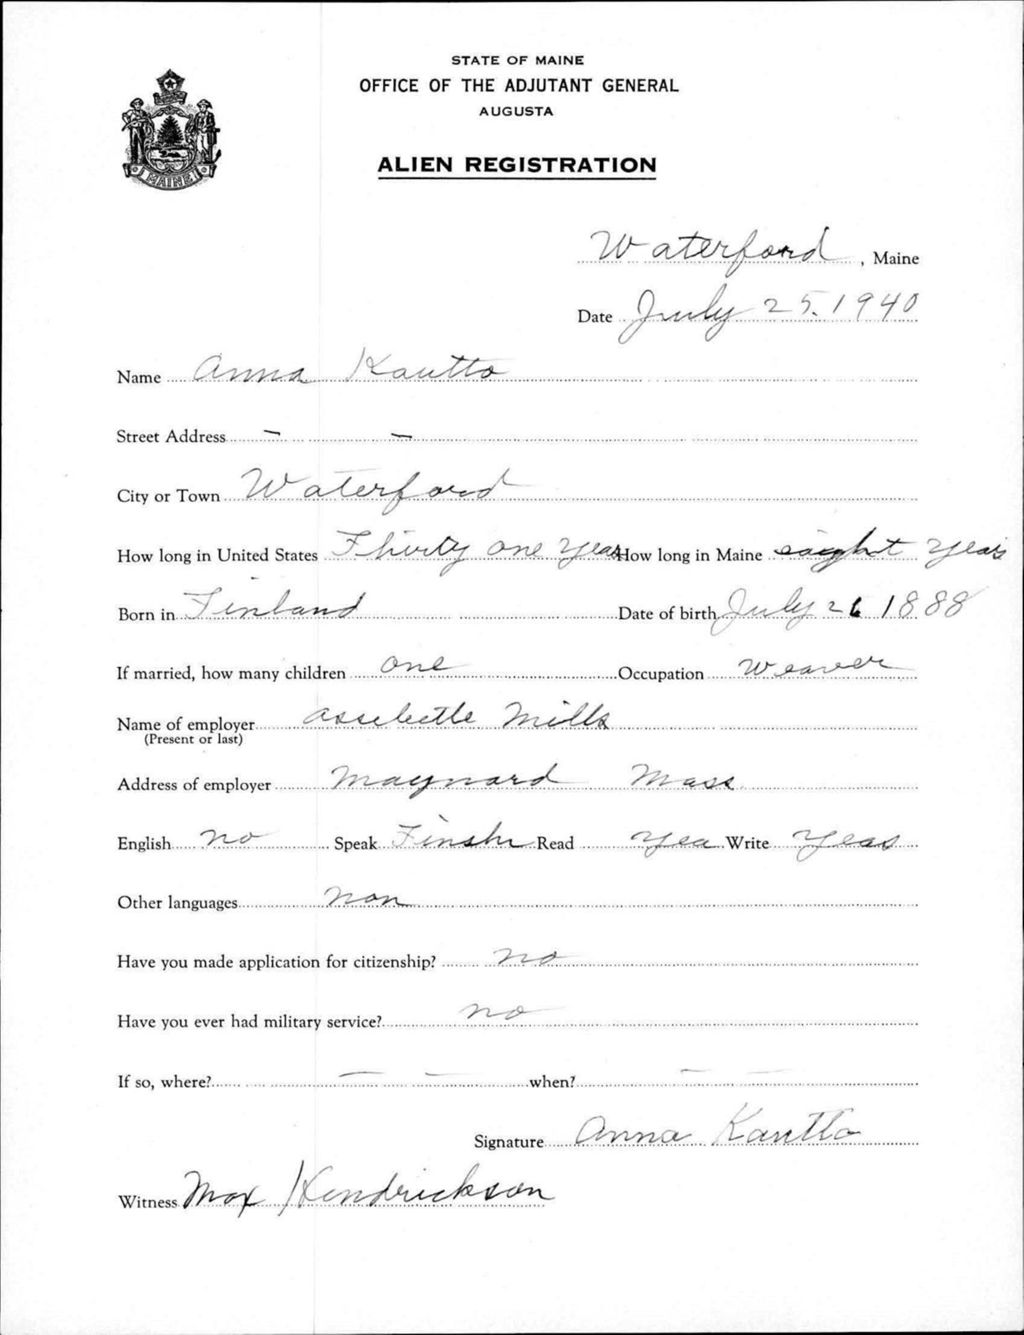 STATE OF MAINE
OFFICE OF THE ADJUTANT GENERAL
AUGUSTA
ALIEN REGISTRATION
MAINE
Waterford, Maine
Date July 25. 1940
Name Anna Kautto
Street Address - -
City or Town Waterford
How long in United States Thirty one Years How long in Maine eaight Years
Born in Finland Date of birth July 26 1888
If married, how many children one Occupation Weaver
Name of employer Assebetle Mills
(Present or last)
Address of employer Maynard Mass
English no Speak Finsh Read Yea Write Yeas
Other languages non
Have you made application for citizenship? no
Have you ever had military service? no
If so, where? - - when? - -
Signature Anna Kautto
Witness Max Hendrickson